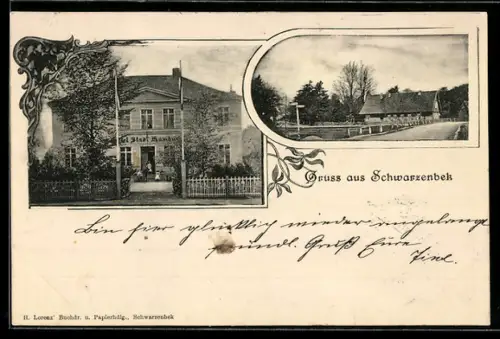 Stadt Hamburg
Gruss aus Schwarzenbek
Bin hier glücklich wieder angelangt
freundl. Gruß Eure
H. Lorenz' Buchdr. u. Papierhdlg., Schwarzenbek